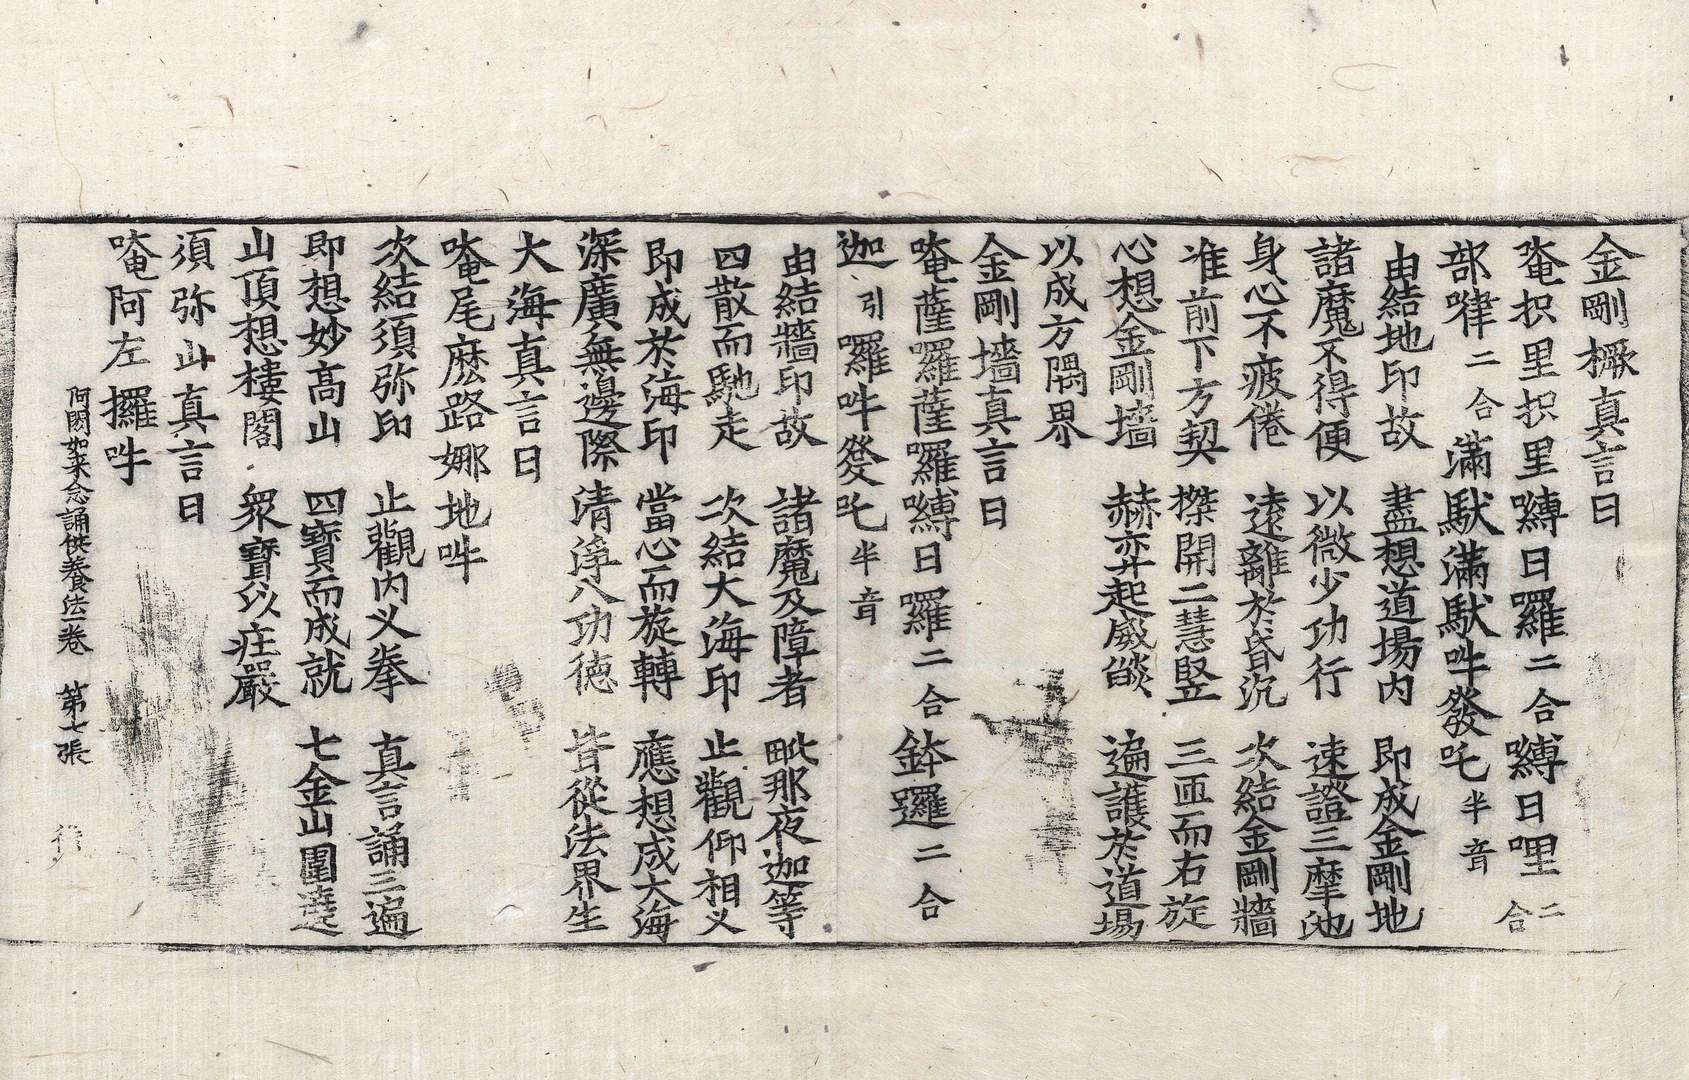 金剛橛真言曰
唵抧里抧里嚩日羅二合嚩日哩二合
部嚀二合滿馱滿馱吽發吒半音
由結地印故　盡想道場內　即成金剛地
諸魔不得便　以微少功行　速證三摩地
身心不疲倦　遠離於昏沉　次結金剛牆
准前下方契　搩開二慧竪　三匝而右旋
心想金剛墻　赫弈起威燄　遍護於道場
以成方隅界
金剛墻真言曰
唵薩囉薩囉嚩日囉二合鉢邏二合
迦引囉吽發吒半音
由結牆印故　諸魔及障者　毗那夜迦等
四散而馳走　次結大海印　止觀仰相叉
即成於海印　當心而旋轉　應想成大海
深廣無邊際　清淨八功德　皆從法界生
大海真言曰
唵尾麽路娜地吽
次結須弥印　止觀內叉拳　真言誦三遍
即想妙高山　四寶而成就　七金山圍遶
山頂想樓閣　眾寶以庄嚴
須弥山真言曰
唵阿左攞吽
阿閦如来念誦供養法一卷　第七張